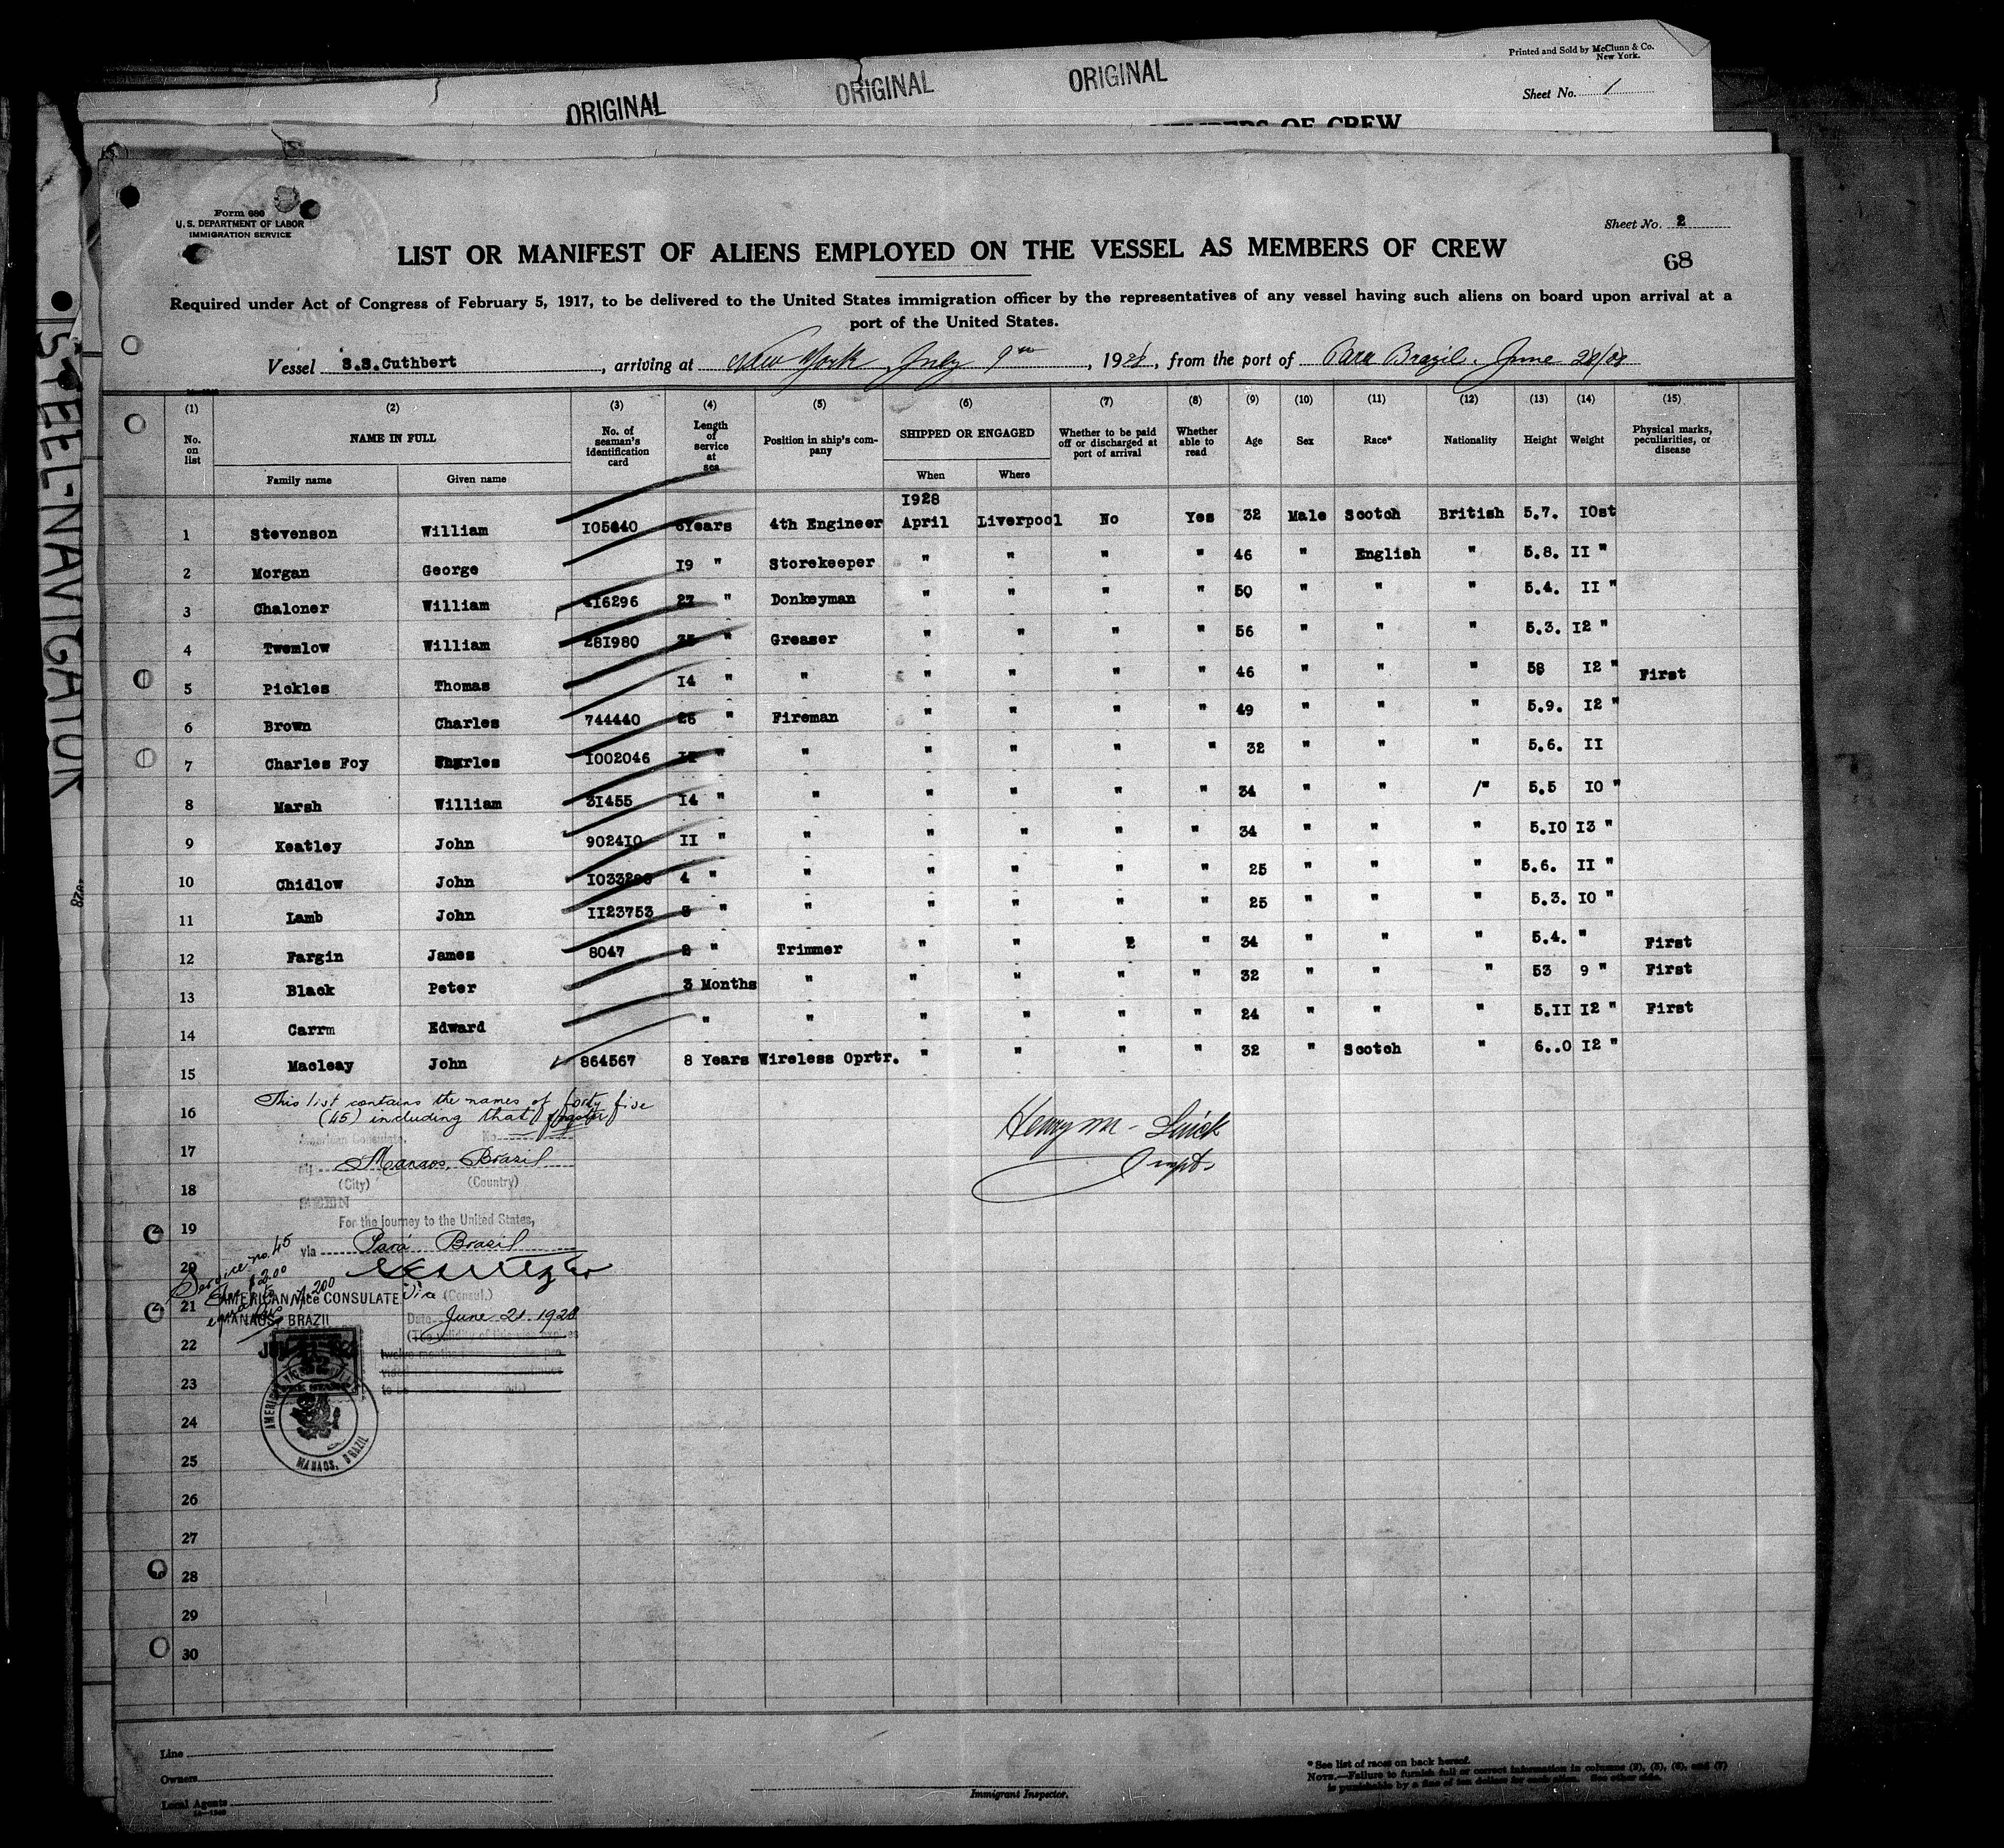 Printed and Sold by McClunn & Co.
New York.
ORIGINAL ORIGINAL ORIGINAL
Sheet No. 1
MEMBERS OF CREW
Form 680
U. S. DEPARTMENT OF LABOR
IMMIGRATION SERVICE
Sheet No. 2
68
LIST OR MANIFEST OF ALIENS EMPLOYED ON THE VESSEL AS MEMBERS OF CREW
Required under Act of Congress of February 5, 1917, to be delivered to the United States immigration officer by the representatives of any vessel having such aliens on board upon arrival at a
port of the United States.
Vessel S.S.Cuthbert, arriving at New York July 9th, 1928, from the port of Para Brazil. June 28/28
(1) (2) (3) (4) (5) (6) (7) (8) (9) (10) (11) (12) (13) (14) (15)
No. on list
NAME IN FULL
Family name Given name
No. of seaman's identification card
Length of service at sea
Position in ship's company
SHIPPED OR ENGAGED
When Where
Whether to be paid off or discharged at port of arrival
Whether able to read
Age Sex Race* Nationality Height Weight
Physical marks, peculiarities, or disease
1928
1 Stevenson William 105440 Years 4th Engineer April Liverpool No Yes 32 Male Scotch British 5.7. 10st
2 Morgan George 19 " Storekeeper " " " " 46 " English " 5.8. 11 "
3 Chaloner William 416296 27 " Donkeyman " " " " 50 " " " 5.4. 11 "
4 Twemlow William 281980 35 " Greaser " " " " 56 " " " 5.3. 12 "
5 Pickles Thomas 14 " " " " " " 46 " " " 58 12 " First
6 Brown Charles 744440 26 " Fireman " " " " 49 " " " 5.9. 12 "
7 Charles Foy Charles 1002046 12 " " " " " " 32 " " " 5.6. 11
8 Marsh William 31455 14 " " " " " " 34 " " " 5.5 10 "
9 Keatley John 902410 11 " " " " " " 34 " " " 5.10 13 "
10 Chidlow John 4 " " " " " " 25 " " " 5.6. 11 "
11 Lamb John 1123753 " " " " " " 25 " " " 5.3. 10 "
12 Fargin James 8047 " Trimmer " " 2 " 34 " " " 5.4. " First
13 Black Peter 3 Months " " " " " 32 " " " 53 9 " First
14 Carrm Edward " " " " " " 24 " " " 5.11 12 " First
15 Macleay John 864567 8 Years Wireless Oprtr. " " " " 32 " Scotch " 6..0 12 "
16
17
18
19
20
21
22
23
24
25
26
27
28
29
30
This list contains the names of forty five
(45) including that of
American Consulate. No.
Manaos, Brazil
(City) (Country)
SEEN
For the journey to the United States,
via Pará Brazil
Service no. 45
$2.00
AMERICAN Vice CONSULATE
(Consul.)
MANAOS, BRAZIL
Date June 21. 1928
MANAOS, BRAZIL
Henry M.
STEELNAVIGATOR
Line
Owners
Local Agents
Immigrant Inspector.
* See list of races on back hereof.
NOTE.—Failure to furnish full or correct information in columns (2), (5), (6), and (7)
is punishable by a fine of ten dollars for each alien. See other side.